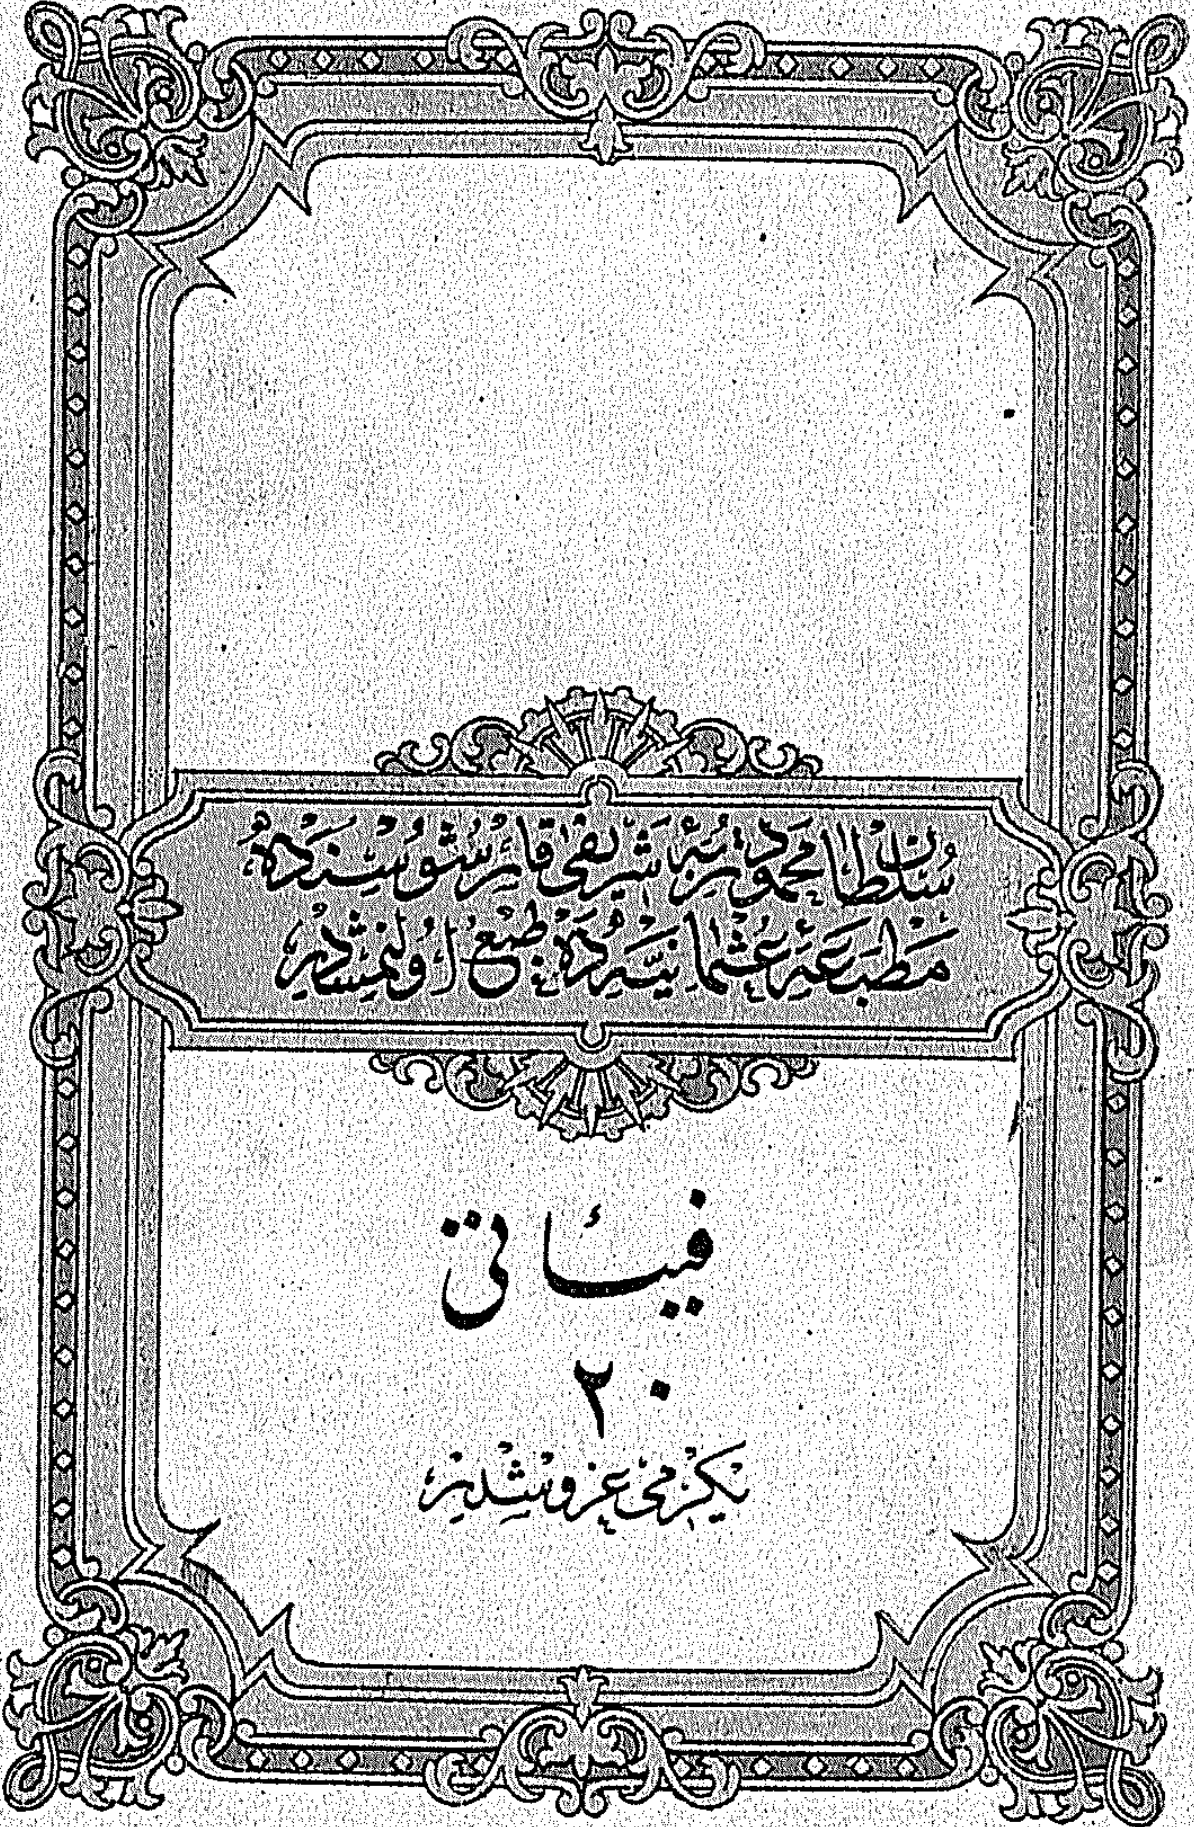 سلطان محمود تربه شريفى قارشوسنده
مطبعۀ عثمانيه ده طبع اولنمشدر
فيئاتى
٢٠
يكرمى غروشدر